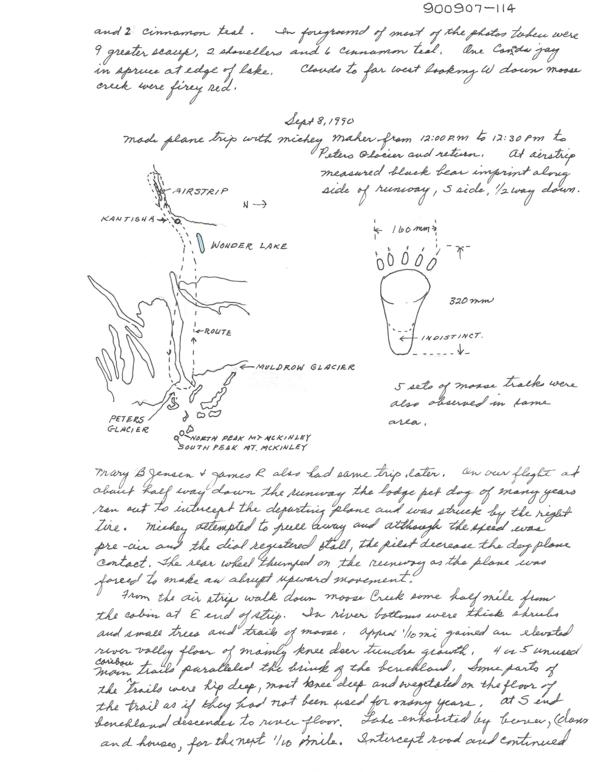 900907-114
and 2 cinnamon teal. In foreground of most of the photos taken were
9 greater scaup, 2 shovellers and 6 cinnamon teal. One Canada jay
in spruce at edge of lake. Clouds to far west looking W down moose
creek were firey red.
Sept 8, 1990
Made plane trip with Mickey Maher from 12:00 PM to 12:30 PM to
Peters Glacier and return. At airstrip
measured black bear imprint along
side of runway, S side, 1/2 way down.
AIRSTRIP
KANTISHA
N →
WONDER LAKE
ROUTE
MULDROW GLACIER
PETERS
GLACIER
NORTH PEAK MT MCKINLEY
SOUTH PEAK MT. MCKINLEY
160 mm
320 mm
INDISTINCT.
5 sets of moose tracks were
also observed in same
area.
Mary B Jensen + James R also had same trip later. On our flight at
about half way down the runway the lodge pet dog of many years
ran out to intercept the departing plane and was struck by the right
tire. Mickey attempted to pull away and although the speed was
pre-air and the dial registered stall, the pilot decrease the dog plane
contact. The rear wheel thumped on the runway as the plane was
forced to make an abrupt upward movement.
From the air strip walk down Moose Creek some half mile from
the cabin at E end of strip. In river bottoms were thick shrubs
and small trees and trails of moose. Approx 1/10 mi gained an elevated
river valley floor of mainly knee deep tundra growth. 4 or 5 unused
caribou
main trails paralleled the brink of the benchland. Some parts of
the trails were hip deep, most knee deep and vegetated on the floor of
the trail as if they had not been used for many years. At S end
benchland descended to river floor. Lake enhabited by beaver, (dams
and houses, for the next 1/10 mile. Intercept road and continued